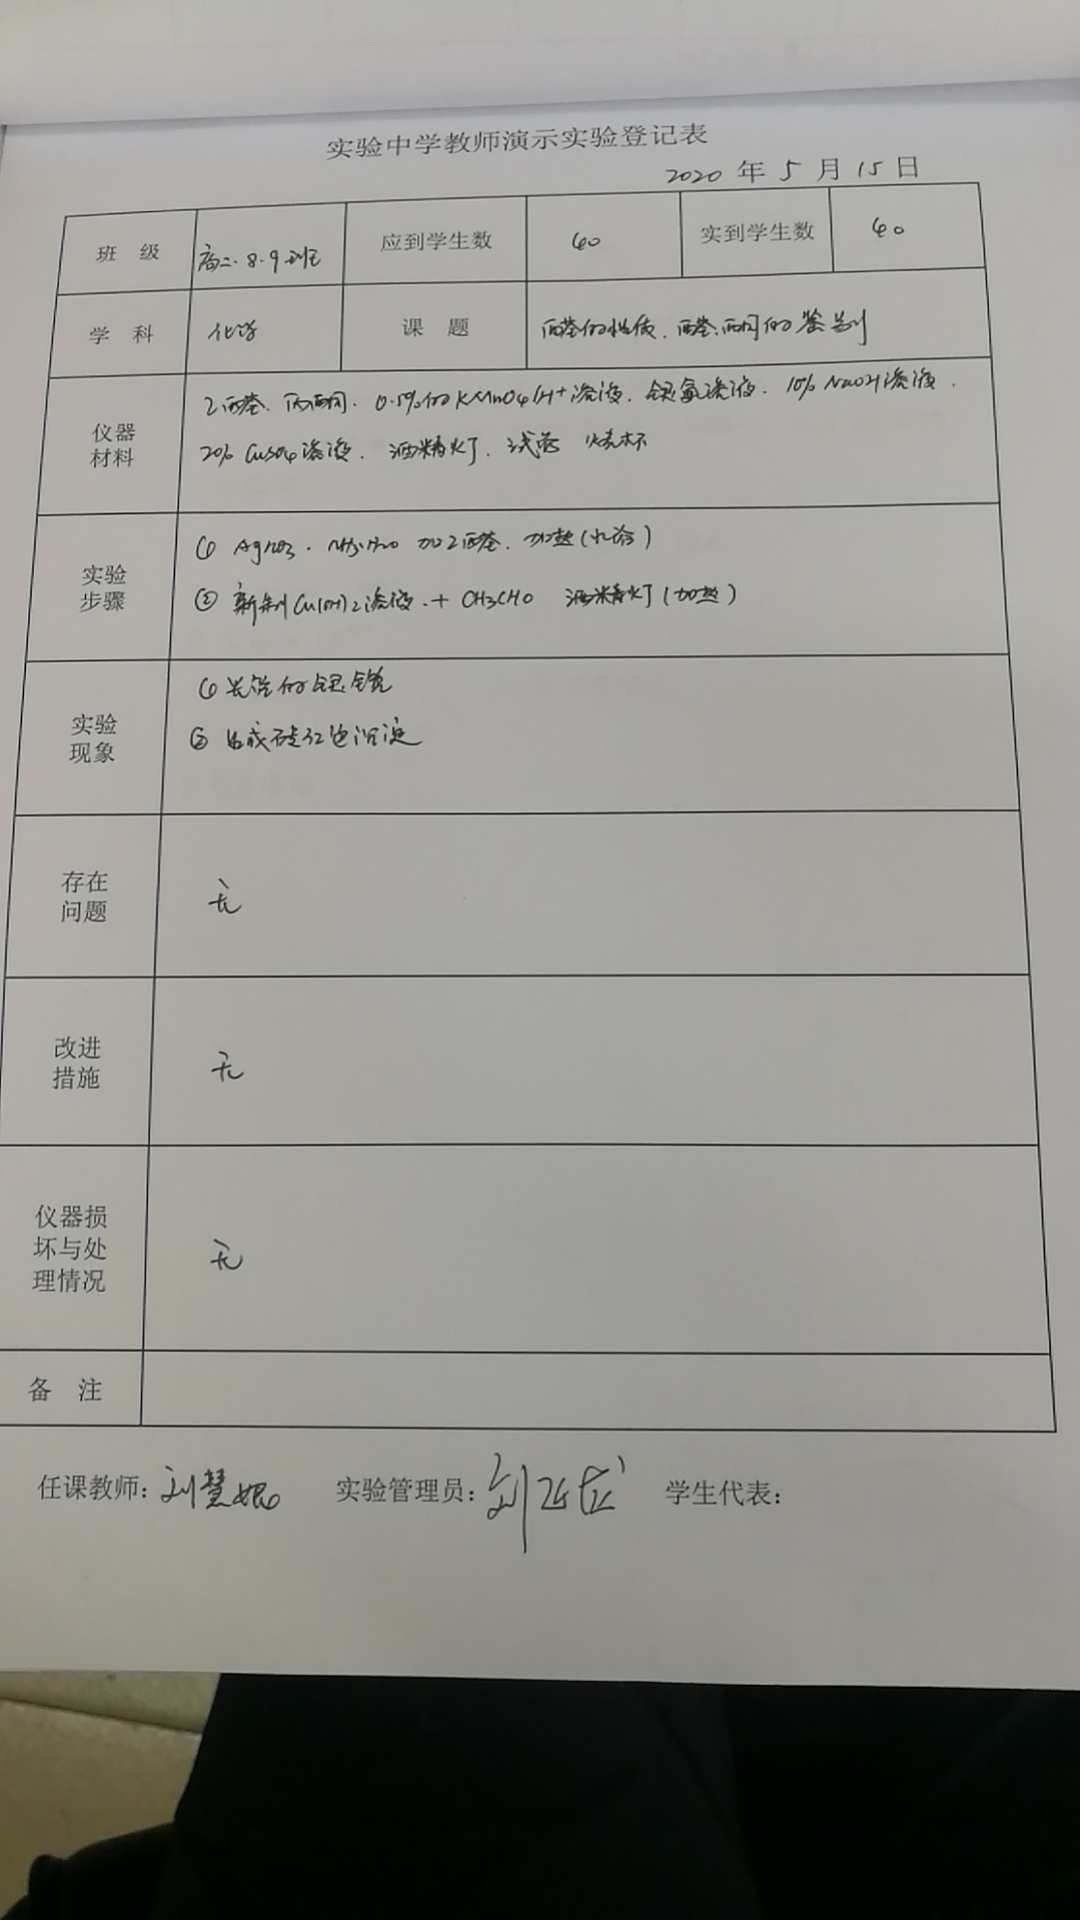 实验中学教师演示实验登记表
2020 年 5 月 15 日
班 级 高二.8.9班 应到学生数 60 实到学生数 60
学 科 化学 课 题 醛的性质、醛、酮的鉴别
仪器材料 乙醛、丙酮、0.5%的KMnO4/H+溶液、银氨溶液、10% NaOH溶液、
20% CuSO4溶液、酒精灯、试管 烧杯
实验步骤 ① AgNO3、NH3·H2O 加乙醛、加热(水浴)
② 新制Cu(OH)2溶液、+ CH3CHO 酒精灯(加热)
实验现象 ①光浩的银镜
② 生成砖红色沉淀
存在问题 无
改进措施 无
仪器损坏与处理情况 无
备 注
任课教师: 刘慧 实验管理员: 刘 学生代表: